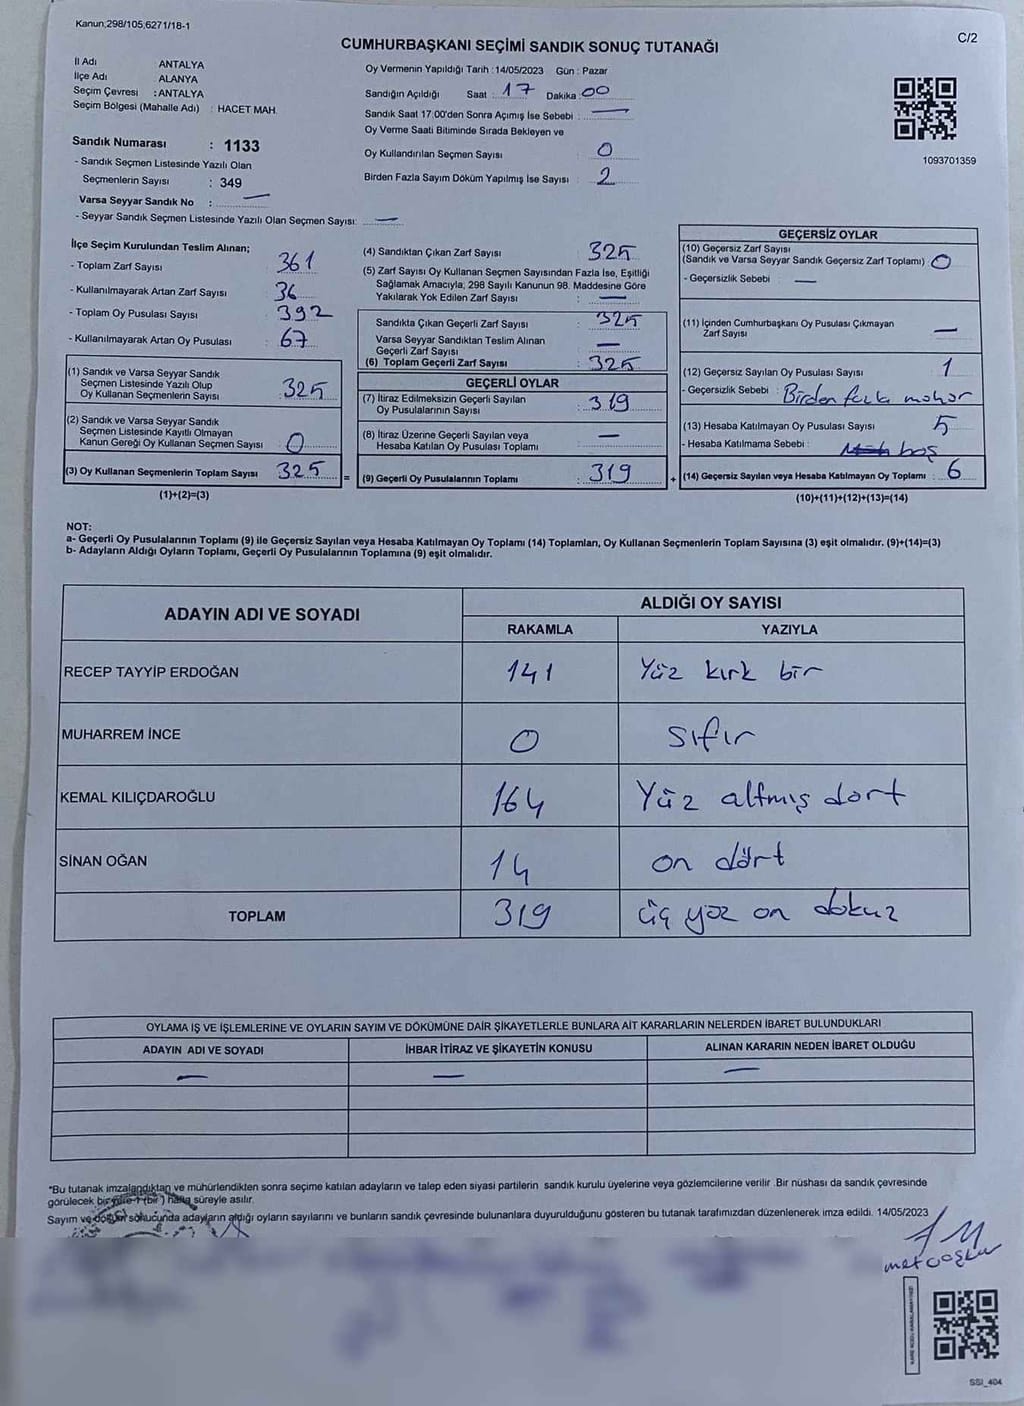 Kanun;298/105;6271/18-1
C/2
CUMHURBAŞKANI SEÇİMİ SANDIK SONUÇ TUTANAĞI
İl Adı ANTALYA
İlçe Adı ALANYA
Seçim Çevresi : ANTALYA
Seçim Bölgesi (Mahalle Adı) : HACET MAH.
Sandık Numarası : 1133
- Sandık Seçmen Listesinde Yazılı Olan
Seçmenlerin Sayısı : 349
Varsa Seyyar Sandık No : —
- Seyyar Sandık Seçmen Listesinde Yazılı Olan Seçmen Sayısı: —
Oy Vermenin Yapıldığı Tarih : 14/05/2023 Gün : Pazar
Sandığın Açıldığı Saat : 17 Dakika : 00
Sandık Saat 17:00'den Sonra Açılmış İse Sebebi : —
Oy Verme Saati Bitiminde Sırada Bekleyen ve
Oy Kullandırılan Seçmen Sayısı : 0
Birden Fazla Sayım Döküm Yapılmış İse Sayısı : 2
1093701359
İlçe Seçim Kurulundan Teslim Alınan;
- Toplam Zarf Sayısı 361
- Kullanılmayarak Artan Zarf Sayısı 36
- Toplam Oy Pusulası Sayısı : 392
- Kullanılmayarak Artan Oy Pusulası : 67
(1) Sandık ve Varsa Seyyar Sandık
Seçmen Listesinde Yazılı Olup
Oy Kullanan Seçmenlerin Sayısı : 325
(2) Sandık ve Varsa Seyyar Sandık
Seçmen Listesinde Kayıtlı Olmayan
Kanun Gereği Oy Kullanan Seçmen Sayısı : 0
(3) Oy Kullanan Seçmenlerin Toplam Sayısı : 325 =
(1)+(2)=(3)
(4) Sandıktan Çıkan Zarf Sayısı : 325
(5) Zarf Sayısı Oy Kullanan Seçmen Sayısından Fazla İse, Eşitliği
Sağlamak Amacıyla, 298 Sayılı Kanunun 98. Maddesine Göre
Yakılarak Yok Edilen Zarf Sayısı : —
Sandıkta Çıkan Geçerli Zarf Sayısı : 325
Varsa Seyyar Sandıktan Teslim Alınan
Geçerli Zarf Sayısı : —
(6) Toplam Geçerli Zarf Sayısı : 325
GEÇERLİ OYLAR
(7) İtiraz Edilmeksizin Geçerli Sayılan
Oy Pusulalarının Sayısı : 319
(8) İtiraz Üzerine Geçerli Sayılan veya
Hesaba Katılan Oy Pusulası Toplamı : —
(9) Geçerli Oy Pusulalarının Toplamı : 319 +
GEÇERSİZ OYLAR
(10) Geçersiz Zarf Sayısı
(Sandık ve Varsa Seyyar Sandık Geçersiz Zarf Toplamı) 0
- Geçersizlik Sebebi : —
(11) İçinden Cumhurbaşkanı Oy Pusulası Çıkmayan
Zarf Sayısı —
(12) Geçersiz Sayılan Oy Pusulası Sayısı 1
- Geçersizlik Sebebi : Birden fazla mühür
(13) Hesaba Katılmayan Oy Pusulası Sayısı 5
- Hesaba Katılmama Sebebi : boş
(14) Geçersiz Sayılan veya Hesaba Katılmayan Oy Toplamı : 6
(10)+(11)+(12)+(13)=(14)
NOT:
a- Geçerli Oy Pusulalarının Toplamı (9) ile Geçersiz Sayılan veya Hesaba Katılmayan Oy Toplamı (14) Toplamları, Oy Kullanan Seçmenlerin Toplam Sayısına (3) eşit olmalıdır. (9)+(14)=(3)
b- Adayların Aldığı Oyların Toplamı, Geçerli Oy Pusulalarının Toplamına (9) eşit olmalıdır.
ADAYIN ADI VE SOYADI ALDIĞI OY SAYISI
RAKAMLA YAZIYLA
RECEP TAYYİP ERDOĞAN 141 Yüz kırk bir
MUHARREM İNCE 0 sıfır
KEMAL KILIÇDAROĞLU 164 Yüz altmış dört
SİNAN OĞAN 14 on dört
TOPLAM 319 üç yüz on dokuz
OYLAMA İŞ VE İŞLEMLERİNE VE OYLARIN SAYIM VE DÖKÜMÜNE DAİR ŞİKAYETLERLE BUNLARA AİT KARARLARIN NELERDEN İBARET BULUNDUKLARI
ADAYIN ADI VE SOYADI İHBAR İTİRAZ VE ŞİKAYETİN KONUSU ALINAN KARARIN NEDEN İBARET OLDUĞU
— — —
*Bu tutanak imzalandıktan ve mühürlendikten sonra seçime katılan adayların ve talep eden siyasi partilerin sandık kurulu üyelerine veya gözlemcilerine verilir .Bir nüshası da sandık çevresinde
görülecek bir yere 1 (bir ) hafta süreyle asılır.
Sayım ve döküm sonucunda adayların aldığı oyların sayılarını ve bunların sandık çevresinde bulunanlara duyurulduğunu gösteren bu tutanak tarafımızdan düzenlenerek imza edildi. 14/05/2023
SSI_404